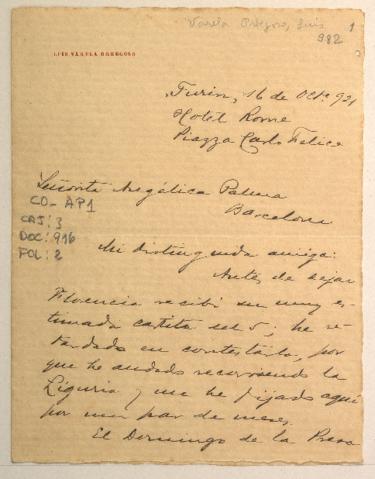 Varela Orbegoso, Luis 1
982
LUIS VARELA ORBEGOSO
Turin, 16 de Octe. 921
Hotel Rome
Piazza Carlo Felice
Señorita Angélica Palma
Barcelona
CO_AP1
CAJ: 3
DOC: 916
FOL: 2
Mi distinguida amiga:
Antes de dejar
Florencia recibí su muy es-
timada cartita del 5; he re-
tardado en contestarla, por
que he andado recorriendo la
Liguria y me he fijado aquí
por un par de meses.
El Domingo de la Prensa